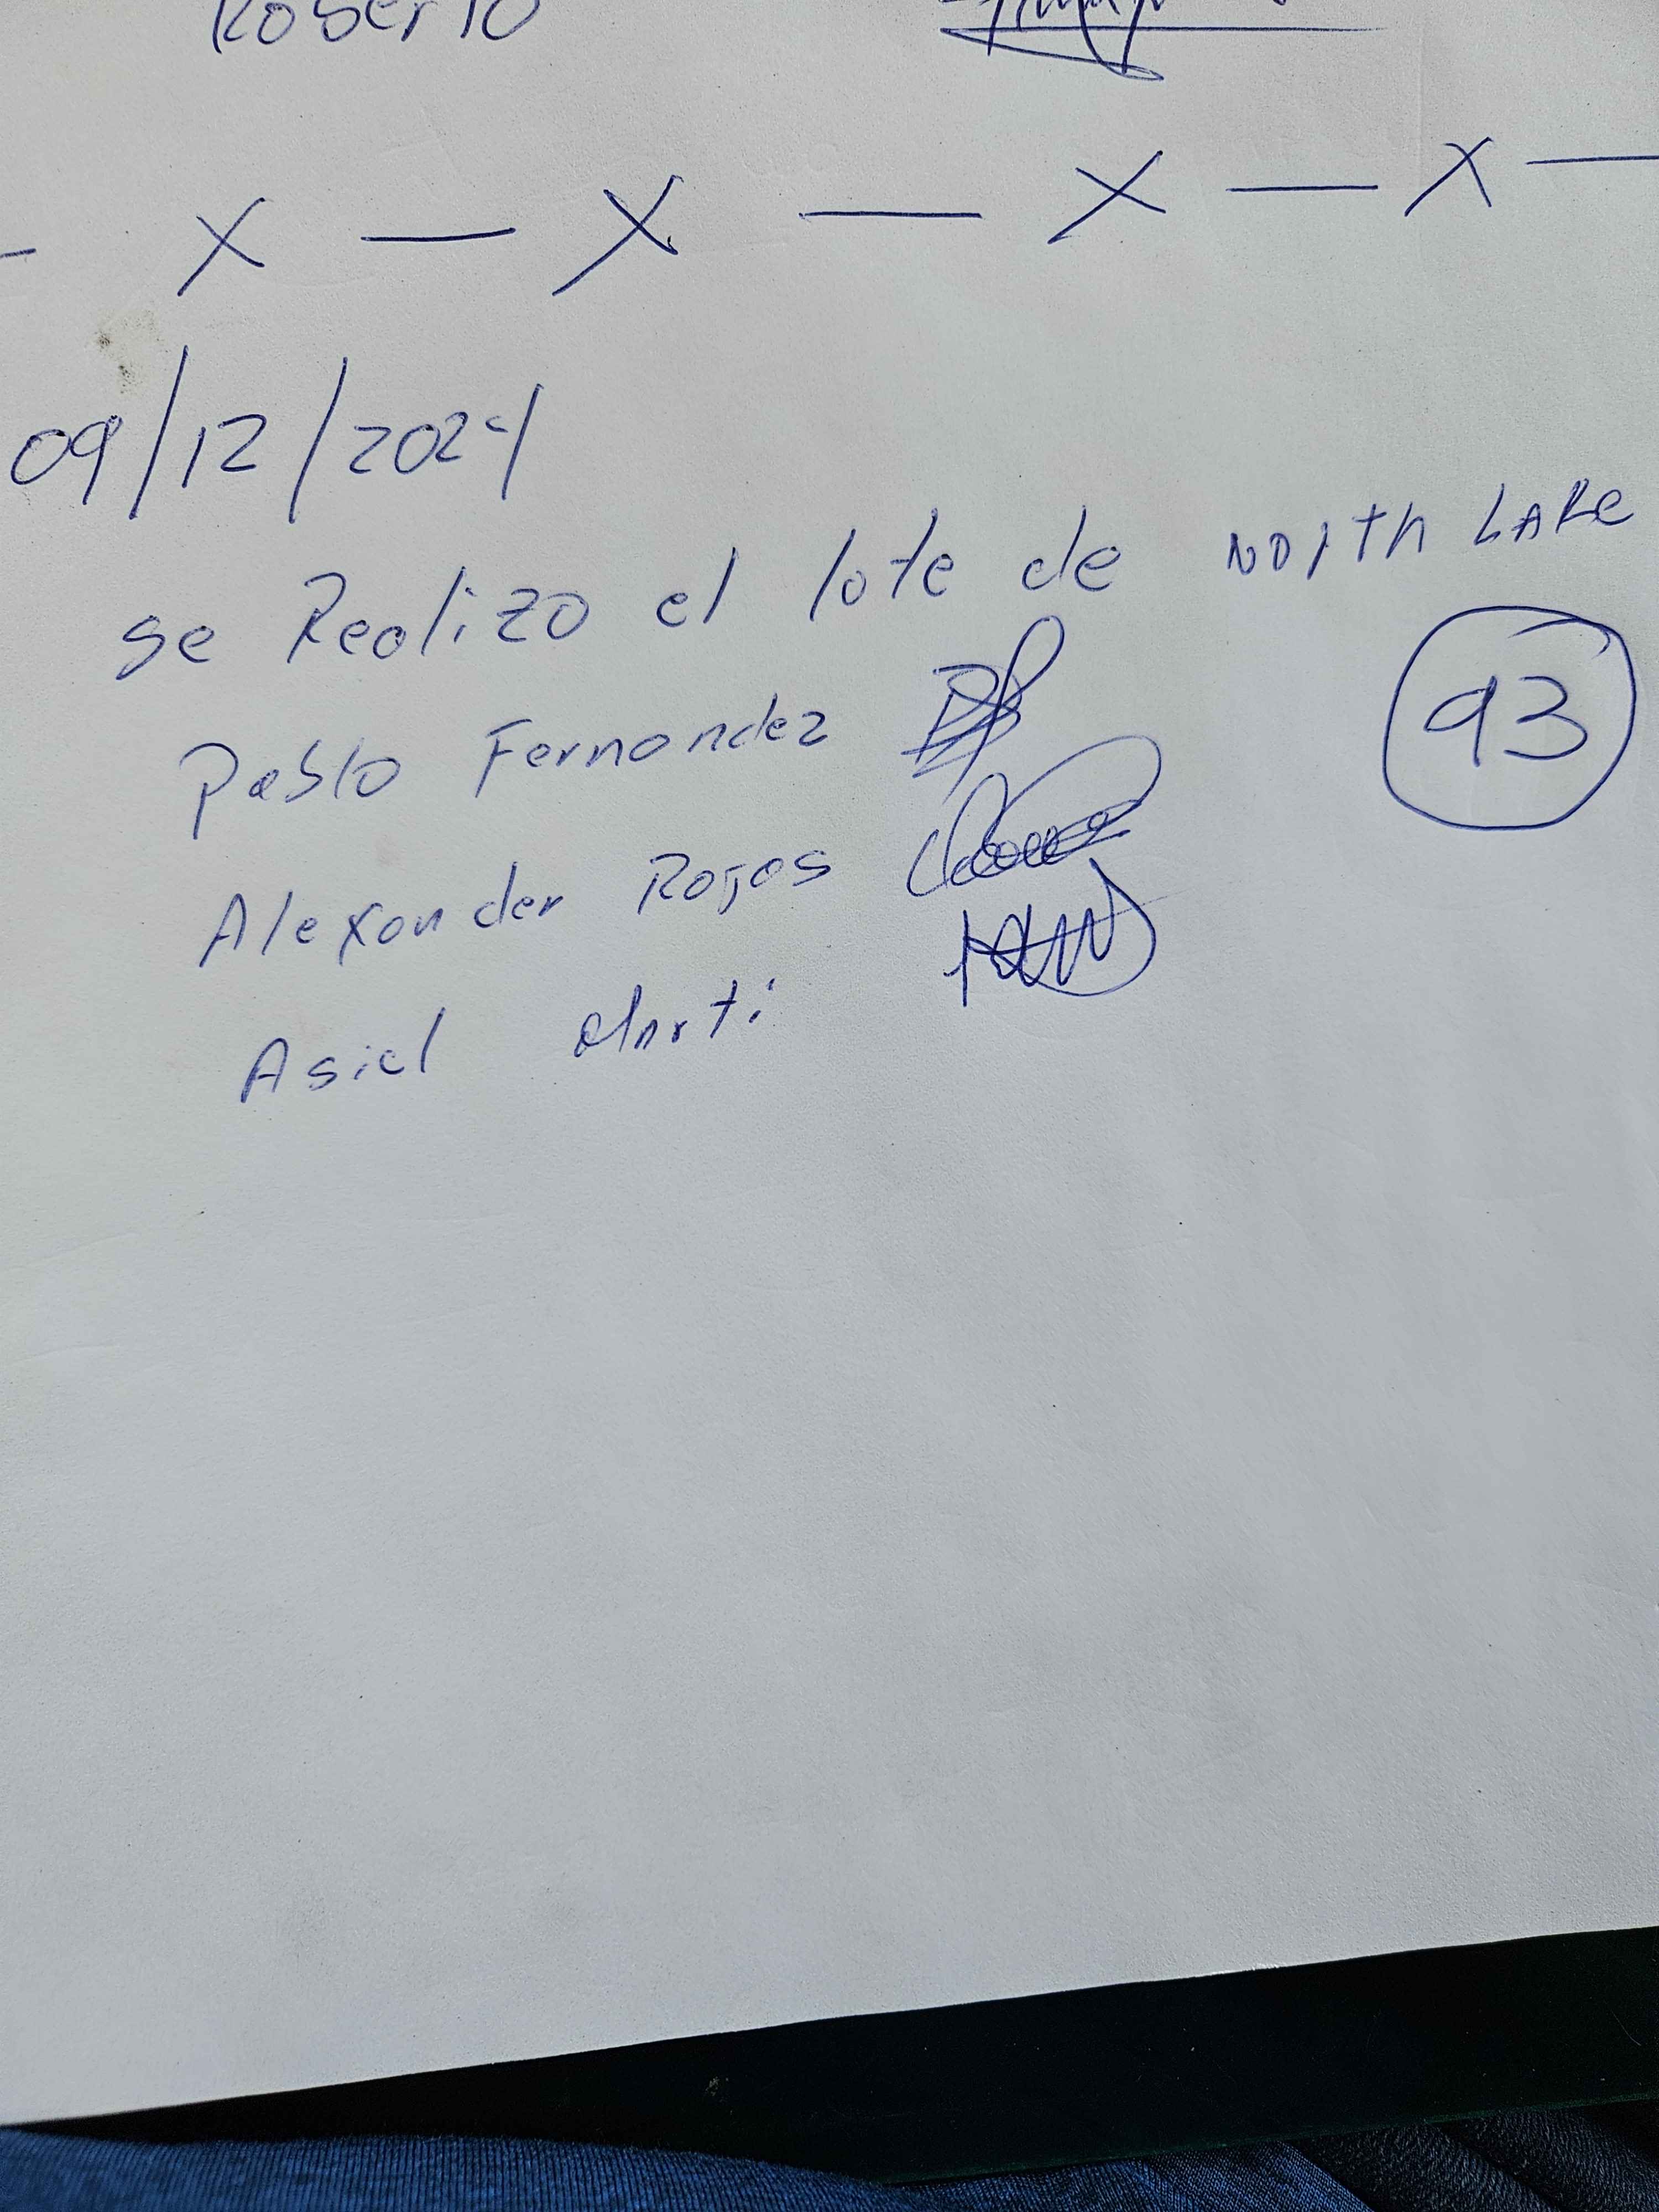 Roberto
X — X — X — X —
09/12/2024
se Realizo el lote de North Lake
93
Pablo Fernandez
Alexander Rojas
Asiel Marti